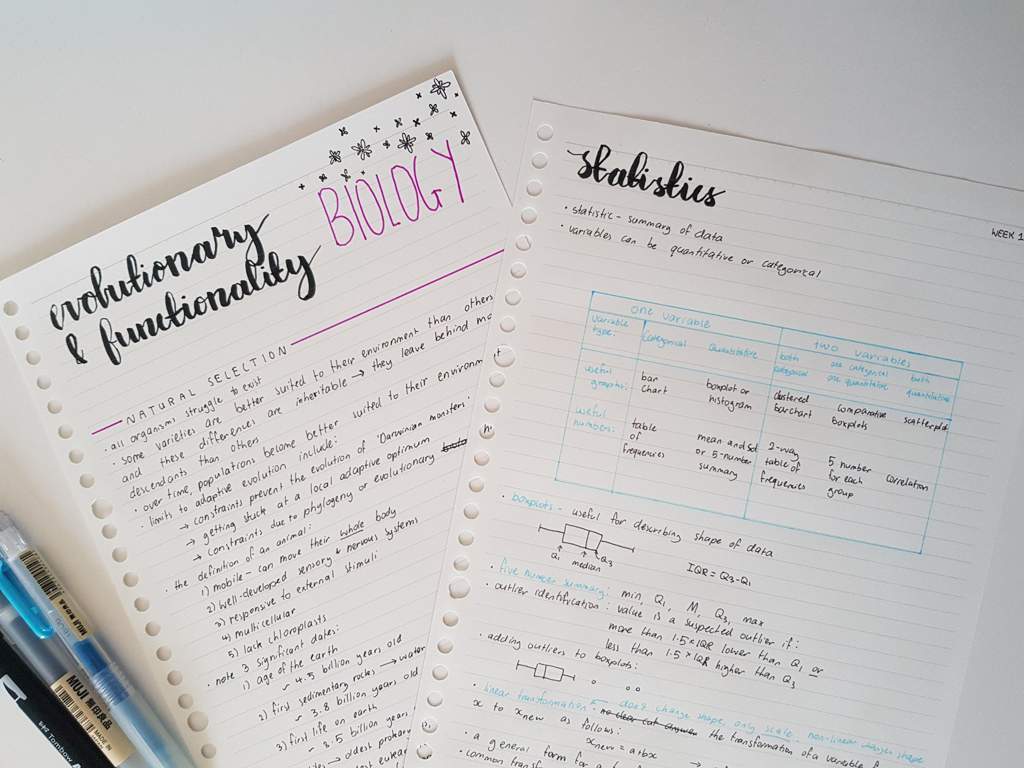 BIOLOGY
evolutionary
& functionality
NATURAL SELECTION
all organisms struggle to exist
• some varieties are better suited to their environment than others
and these differences are inheritable → they leave behind mo
descendants than others
• over time, populations become better suited to their environment
• limits to adaptive evolution include:
→ constraints prevent the evolution of 'Darwinian monsters'
→ getting stuck at a local adaptive optimum
→ constraints due to phylogeny or evolutionary
• the definition of an animal:
1) mobile - can move their whole body
2) well-developed sensory & nervous systems
3) responsive to external stimuli
4) multicellular
5) lack chloroplasts
• note: 3 significant dates:
1) age of the earth
~ 4.5 billion years old
2) first sedimentary rocks → water
~ 3.8 billion years old
3) first life on earth
~ 3.5 billion years
→ oldest prokar
est eukar
MUJI
無印良品
MADE IN
Tombow
statistics
WEEK 1
• statistic - summary of data
• variables can be quantitative or categorical
one variable two variables
variable type: categorical quantitative both categorical one categorical one quantitative both quantitative
useful graphs: bar chart boxplot or histogram clustered barchart comparative boxplots scatterplot
useful numbers: table of frequencies mean and sd or 5-number summary 2-way table of frequencies 5 number for each group correlation
• boxplots - useful for describing shape of data
Q1 median Q3
IQR = Q3-Q1
• five number summary: min, Q1, M, Q3, max
• outlier identification: value is a suspected outlier if:
more than 1.5×IQR lower than Q1 or
less than 1.5×IQR higher than Q3
• adding outliers to boxplots:
• linear transformations - don't change shape, only scale. non-linear changes shape
no clear cut answer the transformation of a variable f
x to xnew as follows:
xnew = a+bx
• a general form for a
• common transf